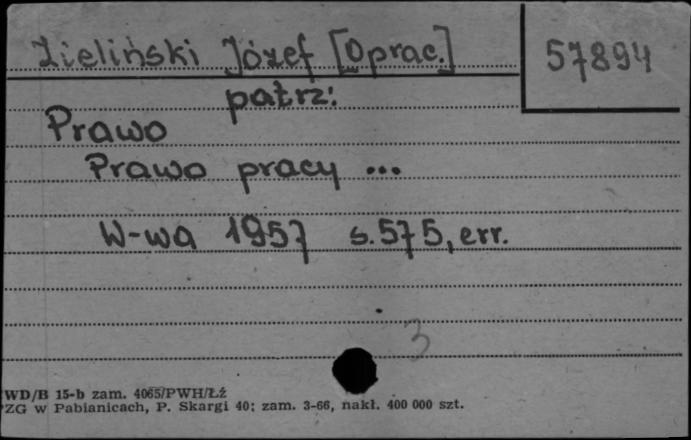 Zieliński Józef [Oprac.]
57894
patrz:
Prawo
Prawo pracy ...
W-wa 1957 s. 575, err.
3
WD/B 15-b zam. 4065/PWH/Łź
PZG w Pabianicach, P. Skargi 40; zam. 3-66, nakł. 400 000 szt.